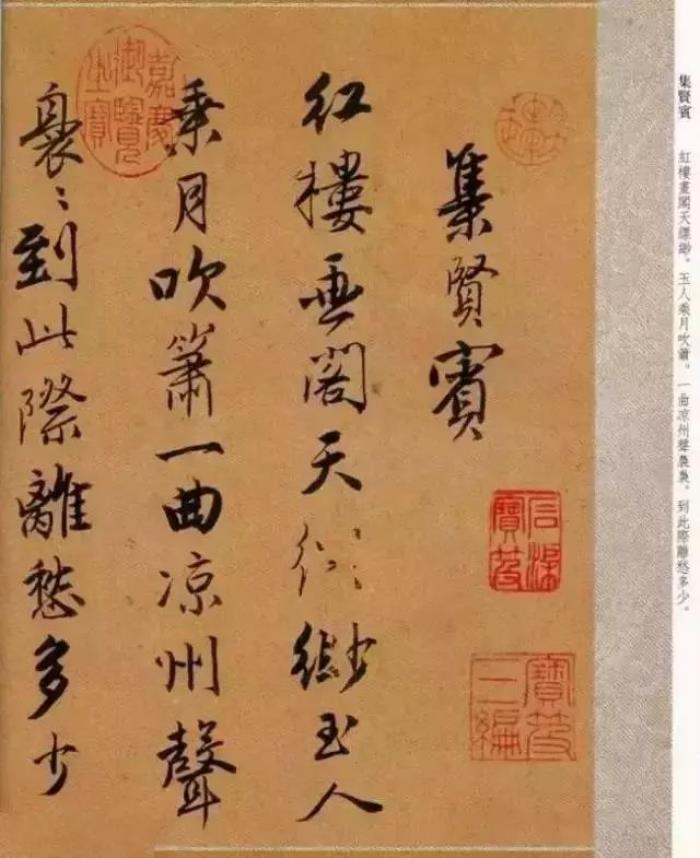 集賢賓 紅樓畫閣天縹緲。玉人乘月吹簫。一曲凉州聲裊裊。到此際離愁多少。
集賢賓
石渠寶笈
寶笈三編
红樓畫閣天縹緲玉人
乘月吹簫一曲凉州聲
嘉慶御覽之寶
裊〻到此際離愁多少